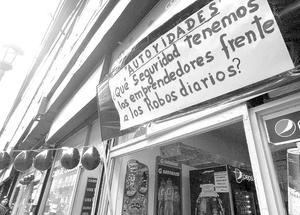 "AUTORIDADES"
¿Qué Seguridad tenemos
los emprendedores frente
a los Robos diarios?
pepsi